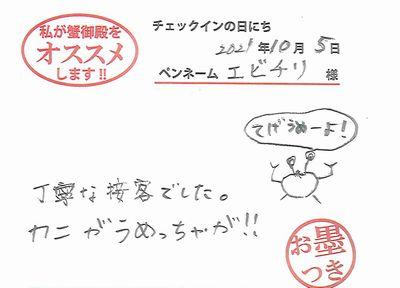 私が蟹御殿を
オススメ
します!!
チェックインの日にち
2021年10月5日
ペンネーム エビチリ 様
てげうめーよ!
丁寧な接客でした。
カニがうめっちゃが!!
お墨
つき